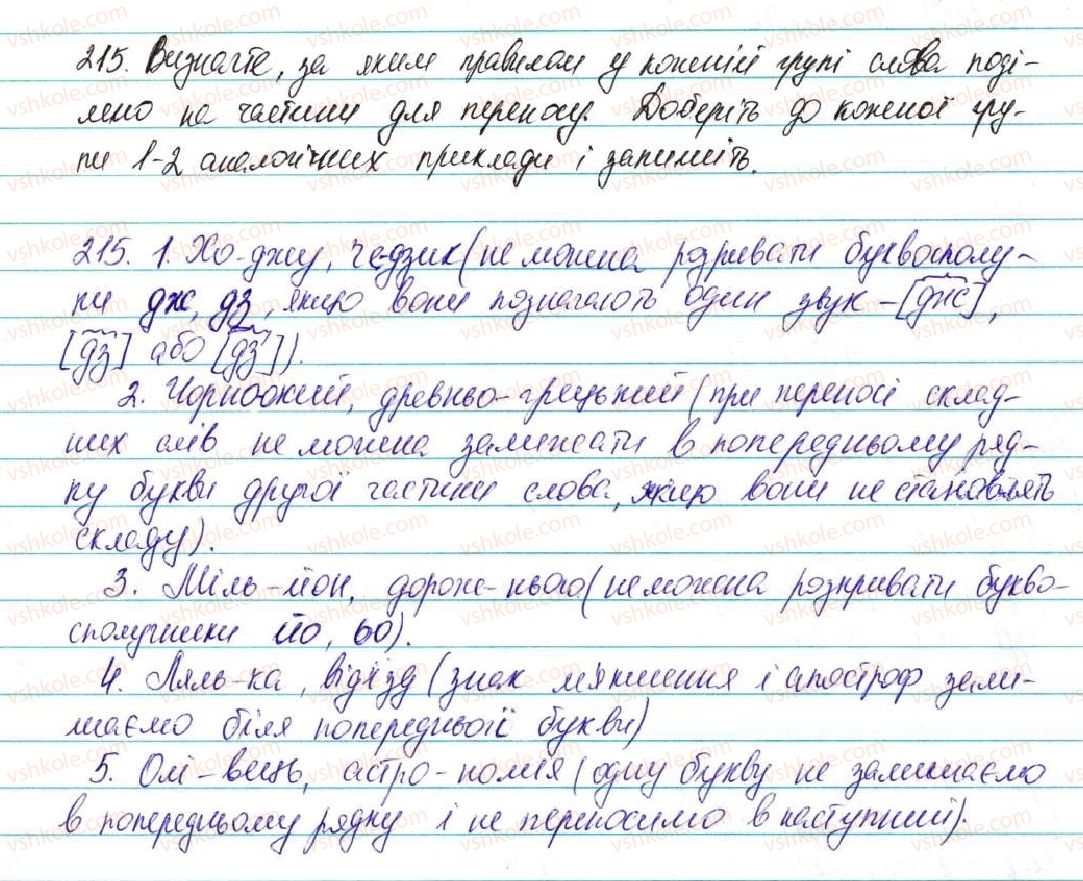 215. Визначте, за яким правилом у кожній групі слова поді-
лено на частини для переносу. Доберіть до кожної гру-
пи 1-2 аналогічних приклади і запишіть.
215. 1. Хо-джу, ґе-дзик (не можна розривати буквосполу-
ки дж, дз, якщо вони позначають один звук - [дж],
[дз] або [дз']).
2. Чорноокий, древньо-грецький (при переносі склад-
них слів не можна залишати в попередньому ряд-
ку букви другої частини слова, якщо вони не становлять
складу).
3. Міль-йон, дорож-нього (не можна розривати букво-
сполучники йо, ьо).
4. Ляль-ка, від'-їзд (знак м'якшення і апостроф зали-
шаємо біля попередньої букви)
5. Олі-вець, астро-номія (одну букву не залишаємо
в попередньому рядку і не переносимо в наступний).
vshkole.com